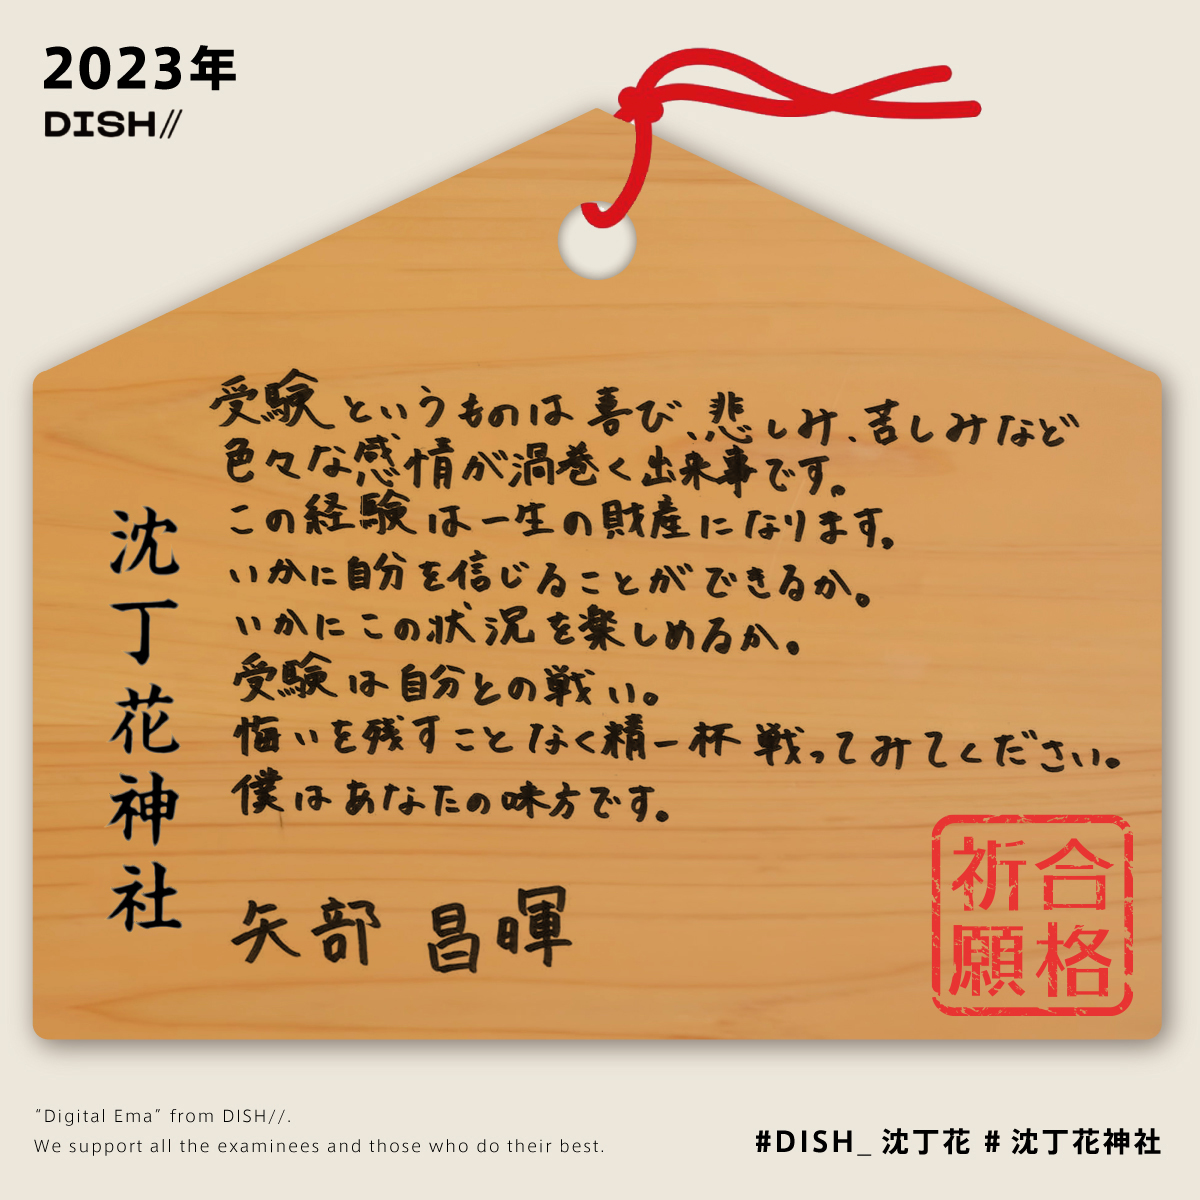 2023年
DISH//
受験というものは喜び、悲しみ、苦しみなど
色々な感情が渦巻く出来事です。
この経験は一生の財産になります。
いかに自分を信じることができるか。
いかにこの状況を楽しめるか。
受験は自分との戦い。
悔いを残すことなく精一杯戦ってみてください。
僕はあなたの味方です。
矢部 昌暉
沈丁花神社
合格
祈願
“Digital Ema” from DISH//.
We support all the examinees and those who do their best.
#DISH_沈丁花 #沈丁花神社